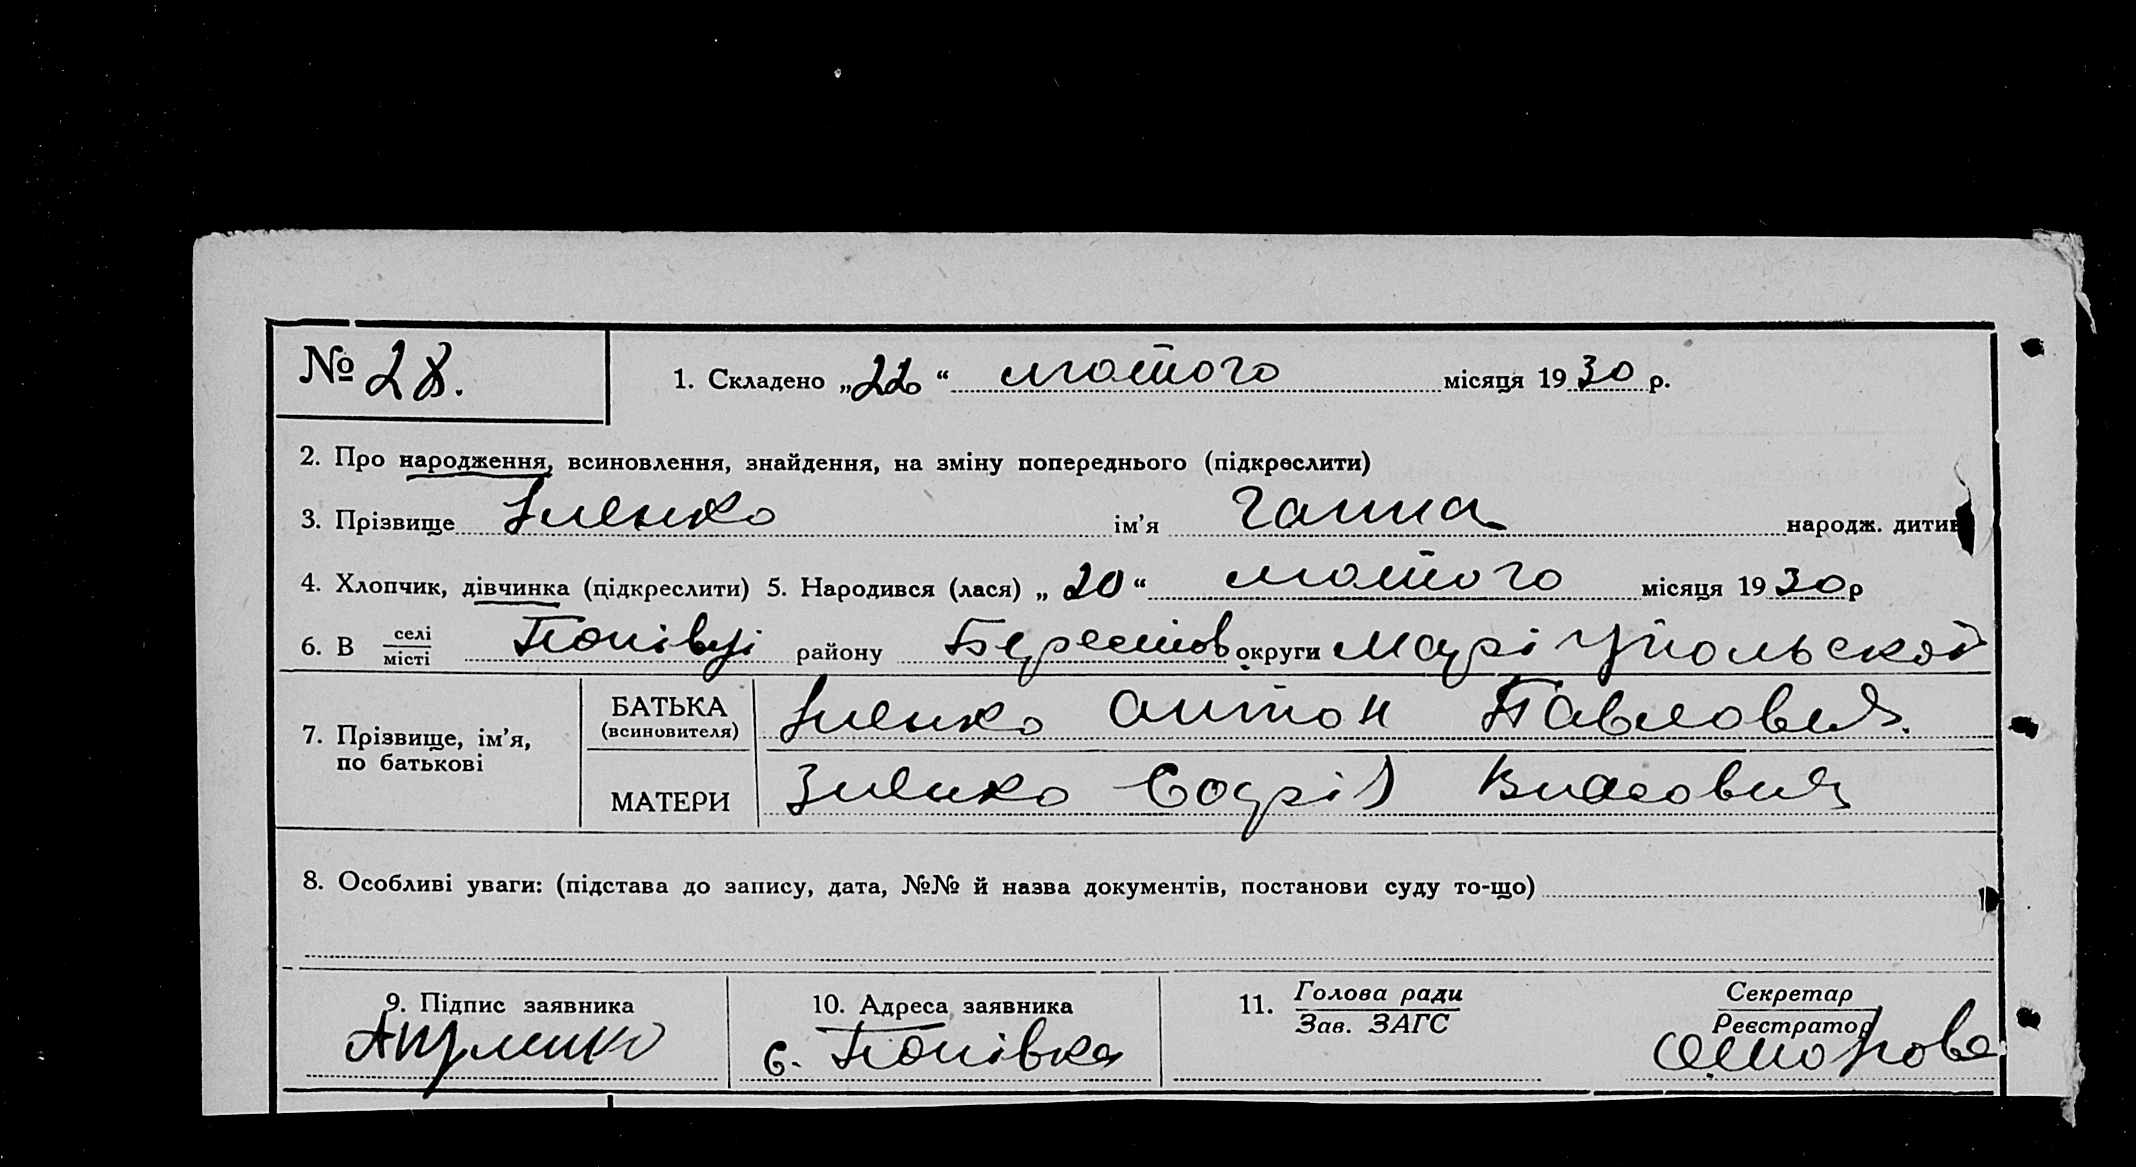 № 28. 1. Складено „22“ лютого місяця 1930 р.
2. Про народження, всиновлення, знайдення, на зміну попереднього (підкреслити)
3. Прізвище ім’я Ганна народж. дитини
4. Хлопчик, дівчинка (підкреслити) 5. Народився (лася) „20“ лютого місяця 1930 р
6. В селі Попівці району Берестов округи Маріупольской
місті
7. Прізвище, ім’я, по батькові
БАТЬКА (всиновителя) Антон Павлович.
МАТЕРИ Зиенко
8. Особливі уваги: (підстава до запису, дата, №№ й назва документів, постанови суду то-що)
9. Підпис заявника 10. Адреса заявника 11. Голова ради Секретар
Зав. ЗАГС Реєстратор
с. Попівка